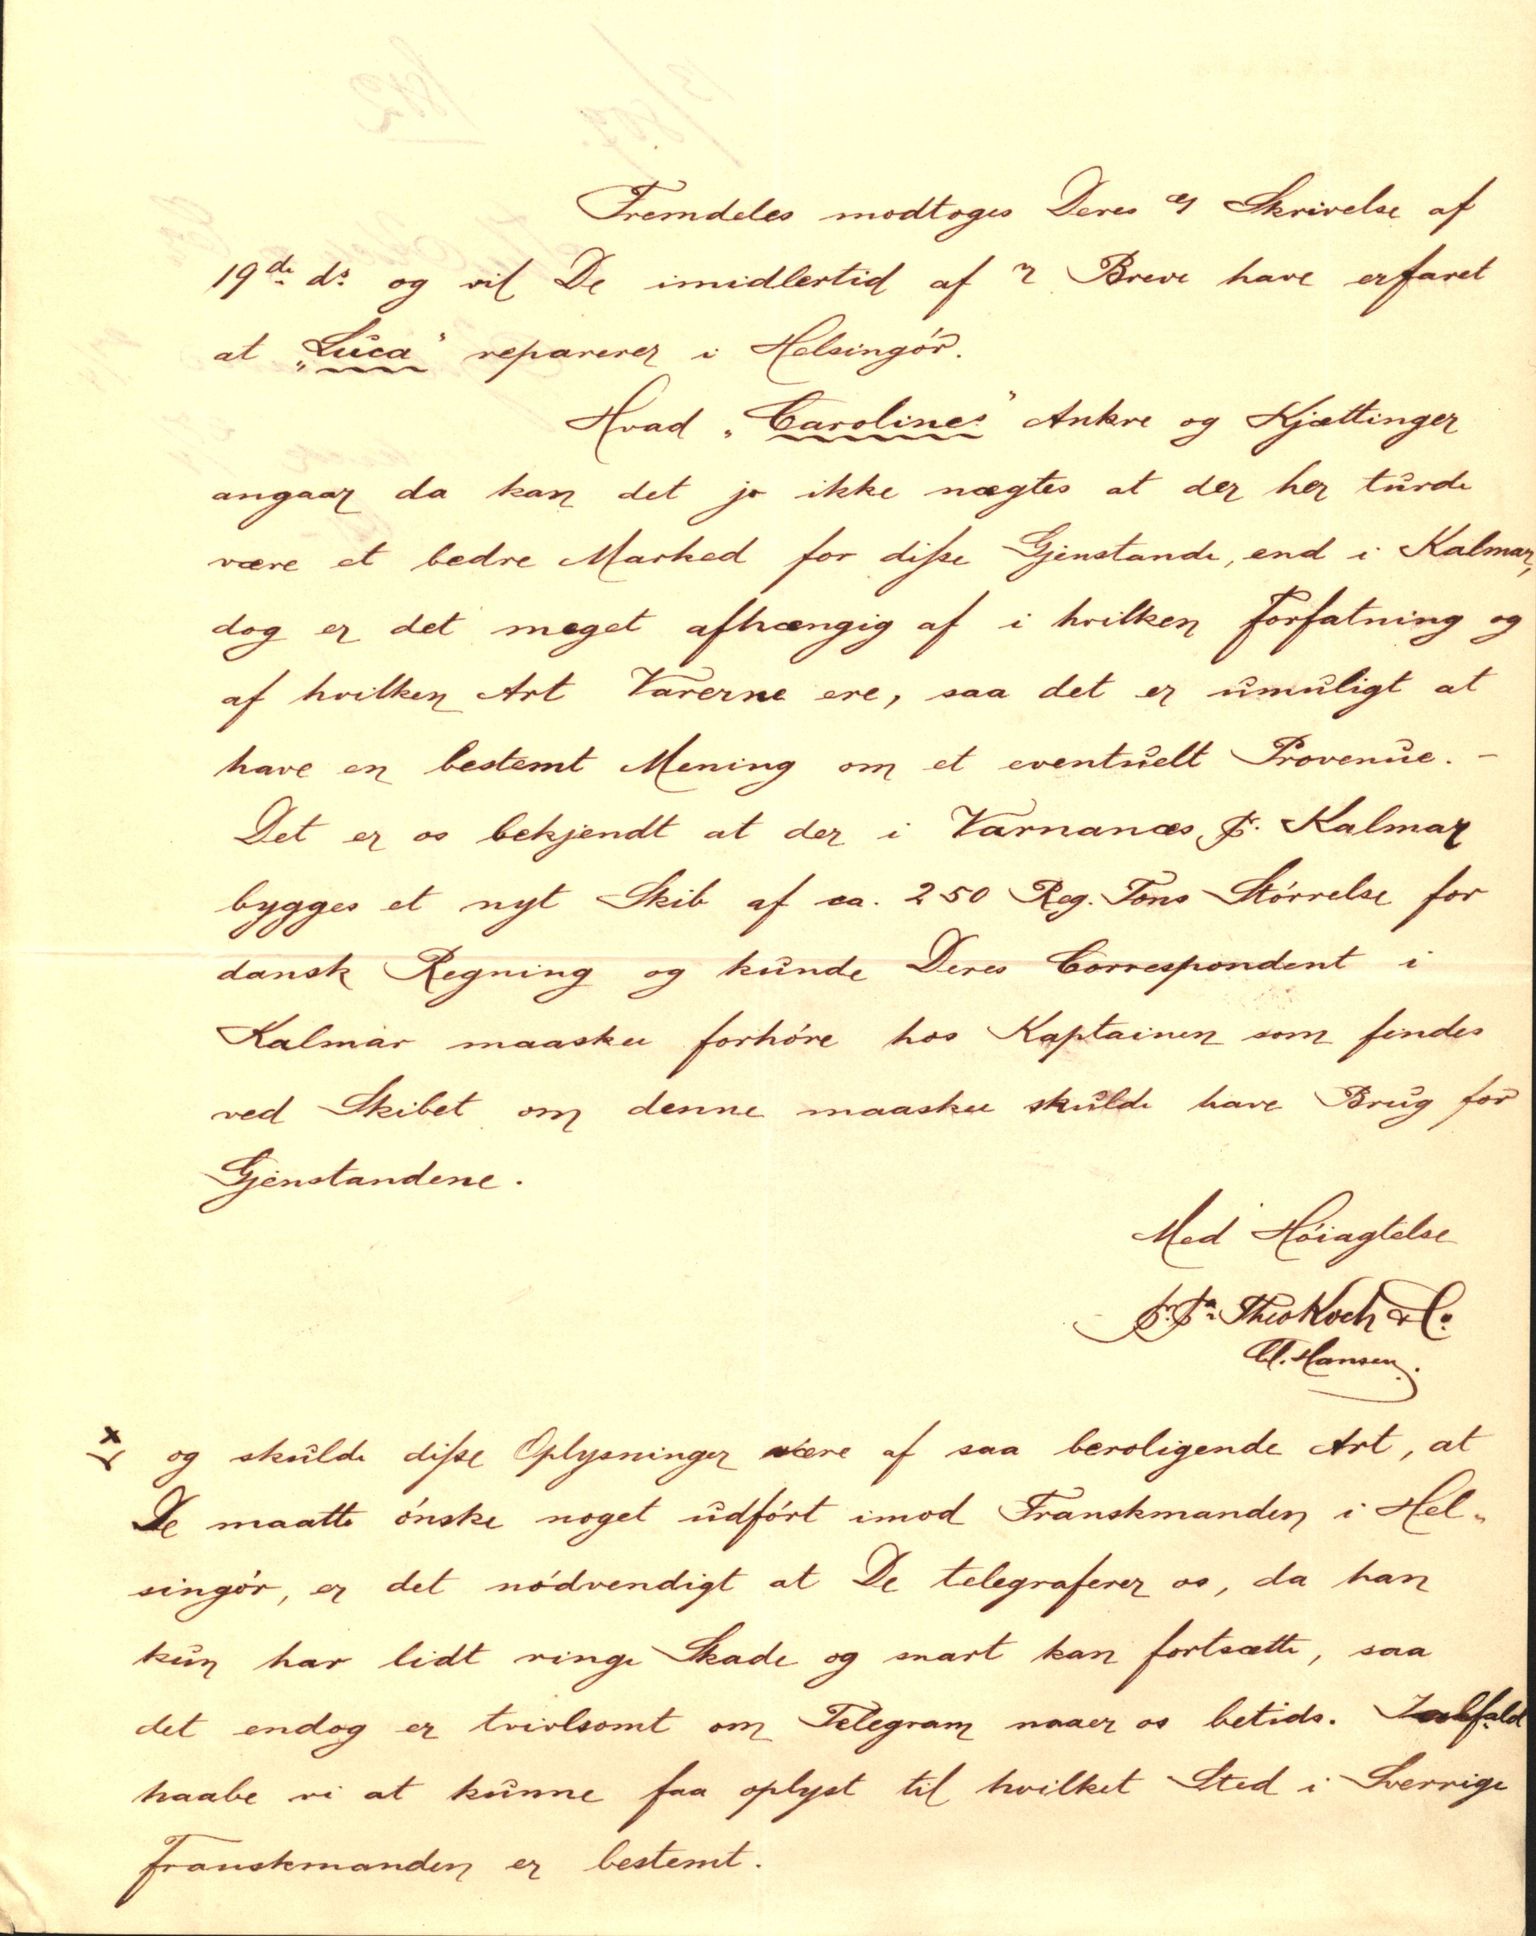 Fremdeles modtoges Deres æ Skrivelse af
19de ds. og vil De imidlertid af n Breve have erfaret
at „Luca" reparerer i Helsingör.
Hvad „Carolines" Ankre og Kjættinger
angaar da kan det jo ikke nægtes at der her turde
være et bedre Marked for disse Gjenstande, end i Kalmar,
dog er det meget afhængig af i hvilken Forfatning og
af hvilken Art Varerne ere, saa det er umuligt at
have en bestemt Mening om et eventuelt Provenue. -
Det er os bekjendt at der i Varnanæs pr. Kalmar
bygges et nyt Skib af ca. 250 Reg. Tons Störrelse for
dansk Regning og kunde Deres Correspondent i
Kalmar maaskee forhöre hos Kaptainen som findes
ved Skibet om denne maaskee skulde have Brug for
Gjenstandene.
Med Höiagtelse
pr. pa. Theo Koch & Co.
Cl. Hansen.
x og skulde disse Oplysninger være af saa beroligende Art, at
De maatte önske noget udfört imod Franskmanden i Hel„
singör, er det nödvendigt at De telegraferer os, da han
kun har lidt ringe Skade og snart kan fortsætte, saa
det endog er tvivlsomt om Telegram naaer os betids. Ialfald
haabe vi at kunne faa oplyst til hvilket Sted i Sverrige
Franskmanden er bestemt.